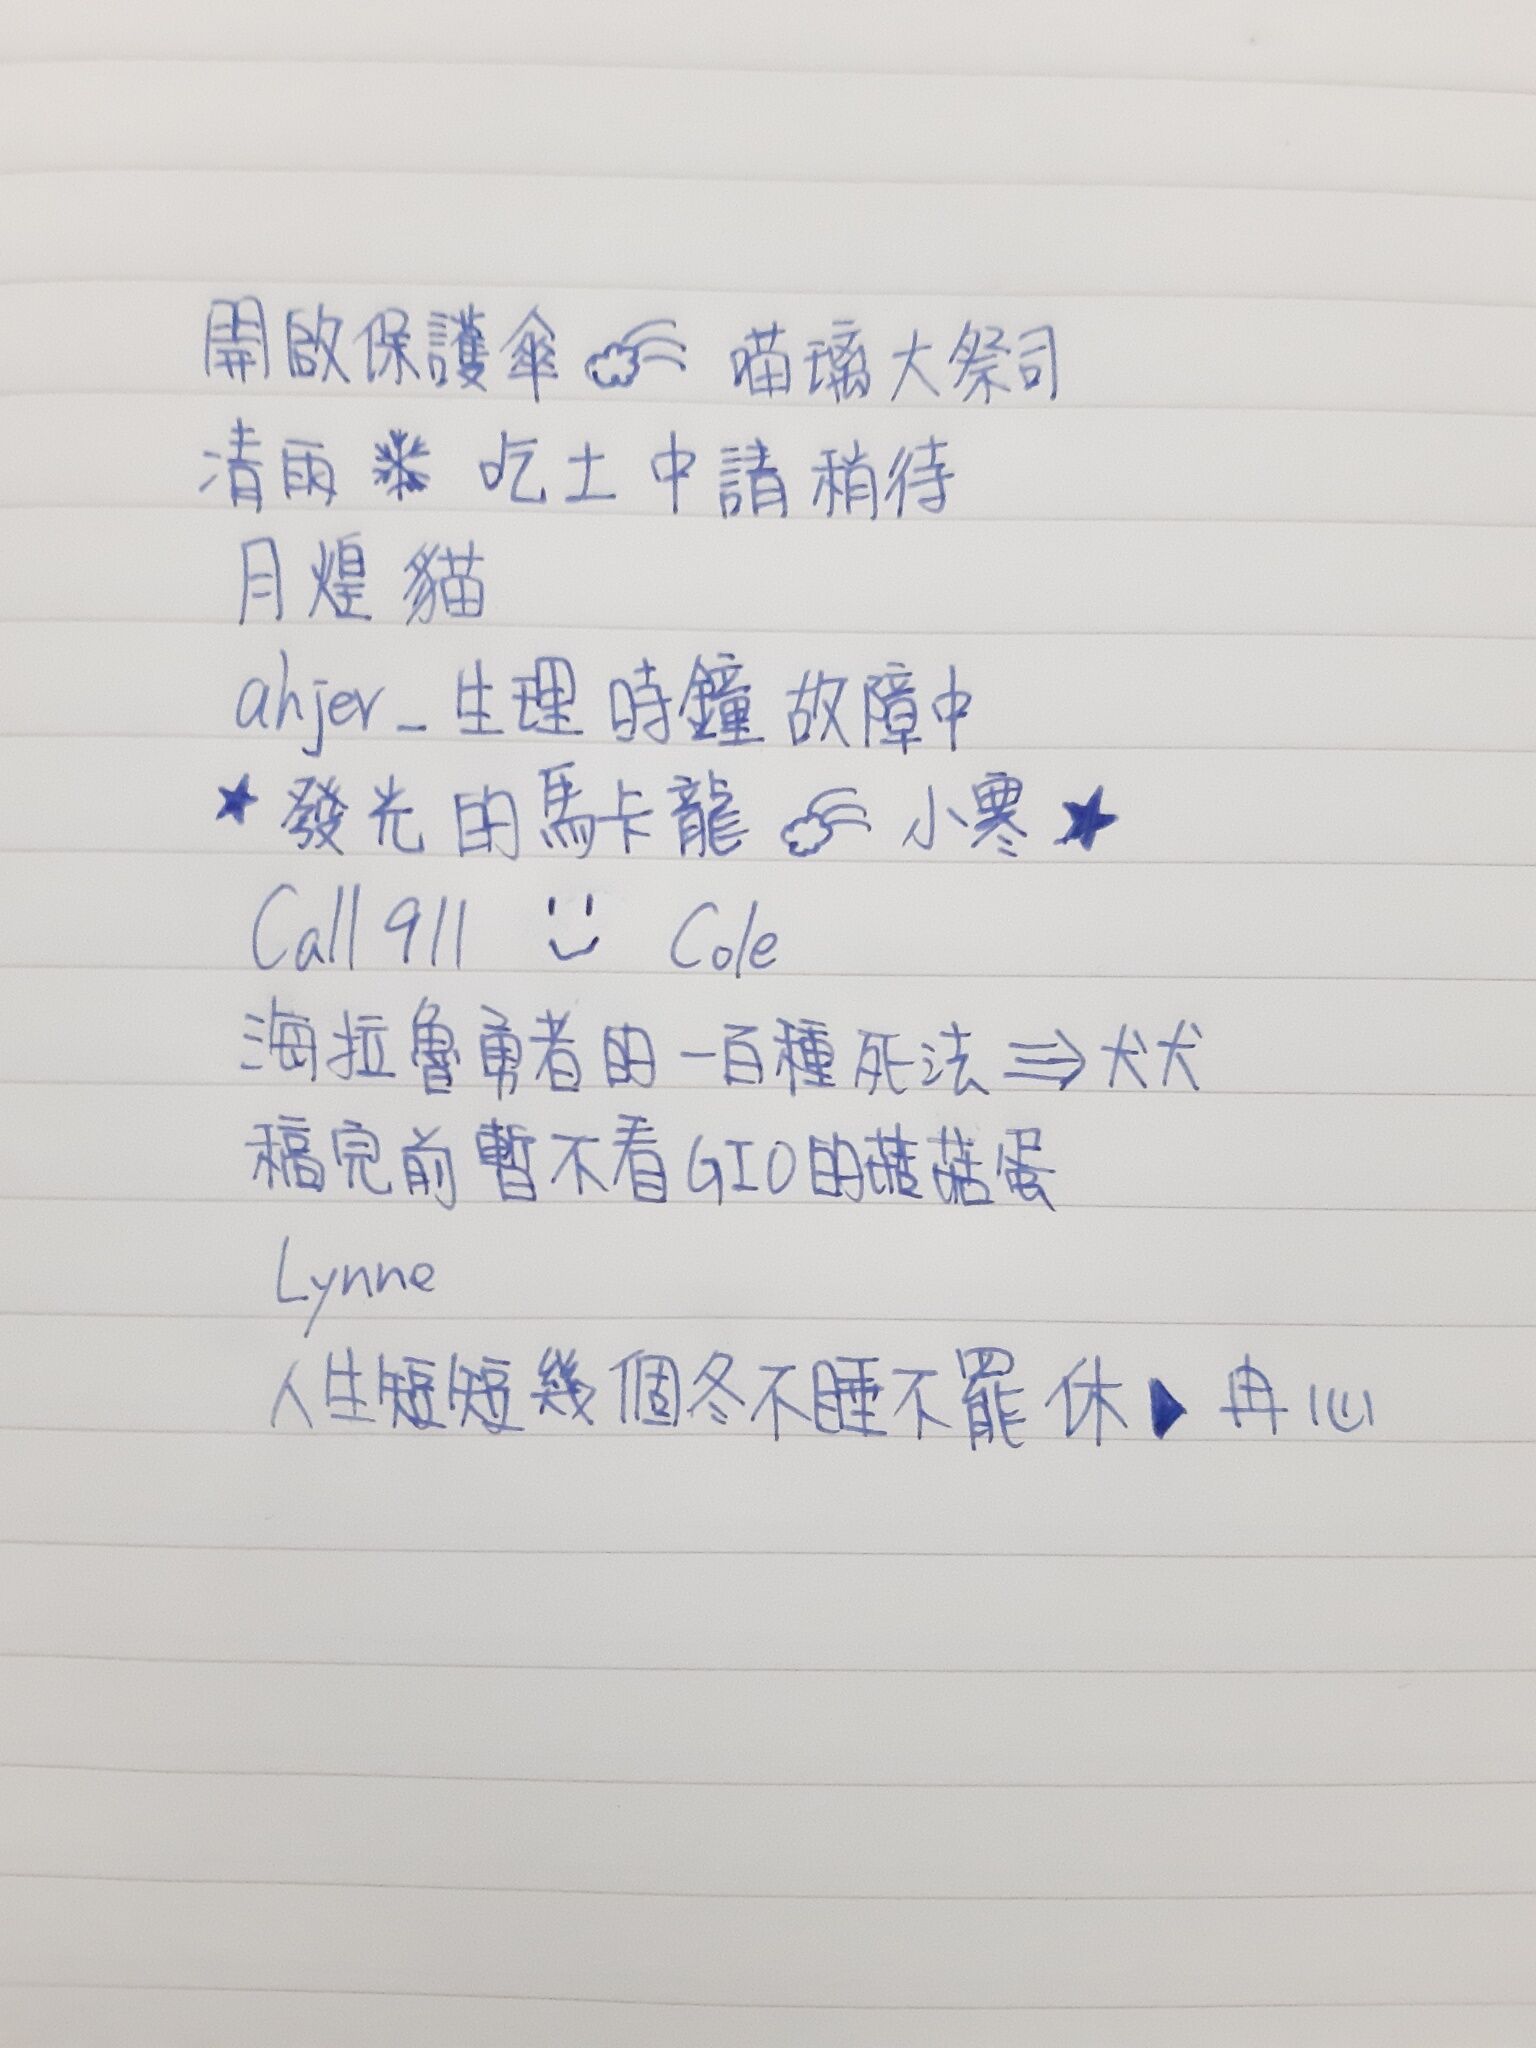 開啟保護傘 喵璃大祭司
清雨❄吃土中請稍待
月煌貓
ahjer_生理時鐘故障中
★發光的馬卡龍 小寒★
Call 911 Cole
海拉魯勇者的一百種死法⇒犬犬
稿完前暫不看GIO的菇菇蛋
Lynne
人生短短幾個冬不睡不罷休▶冉心